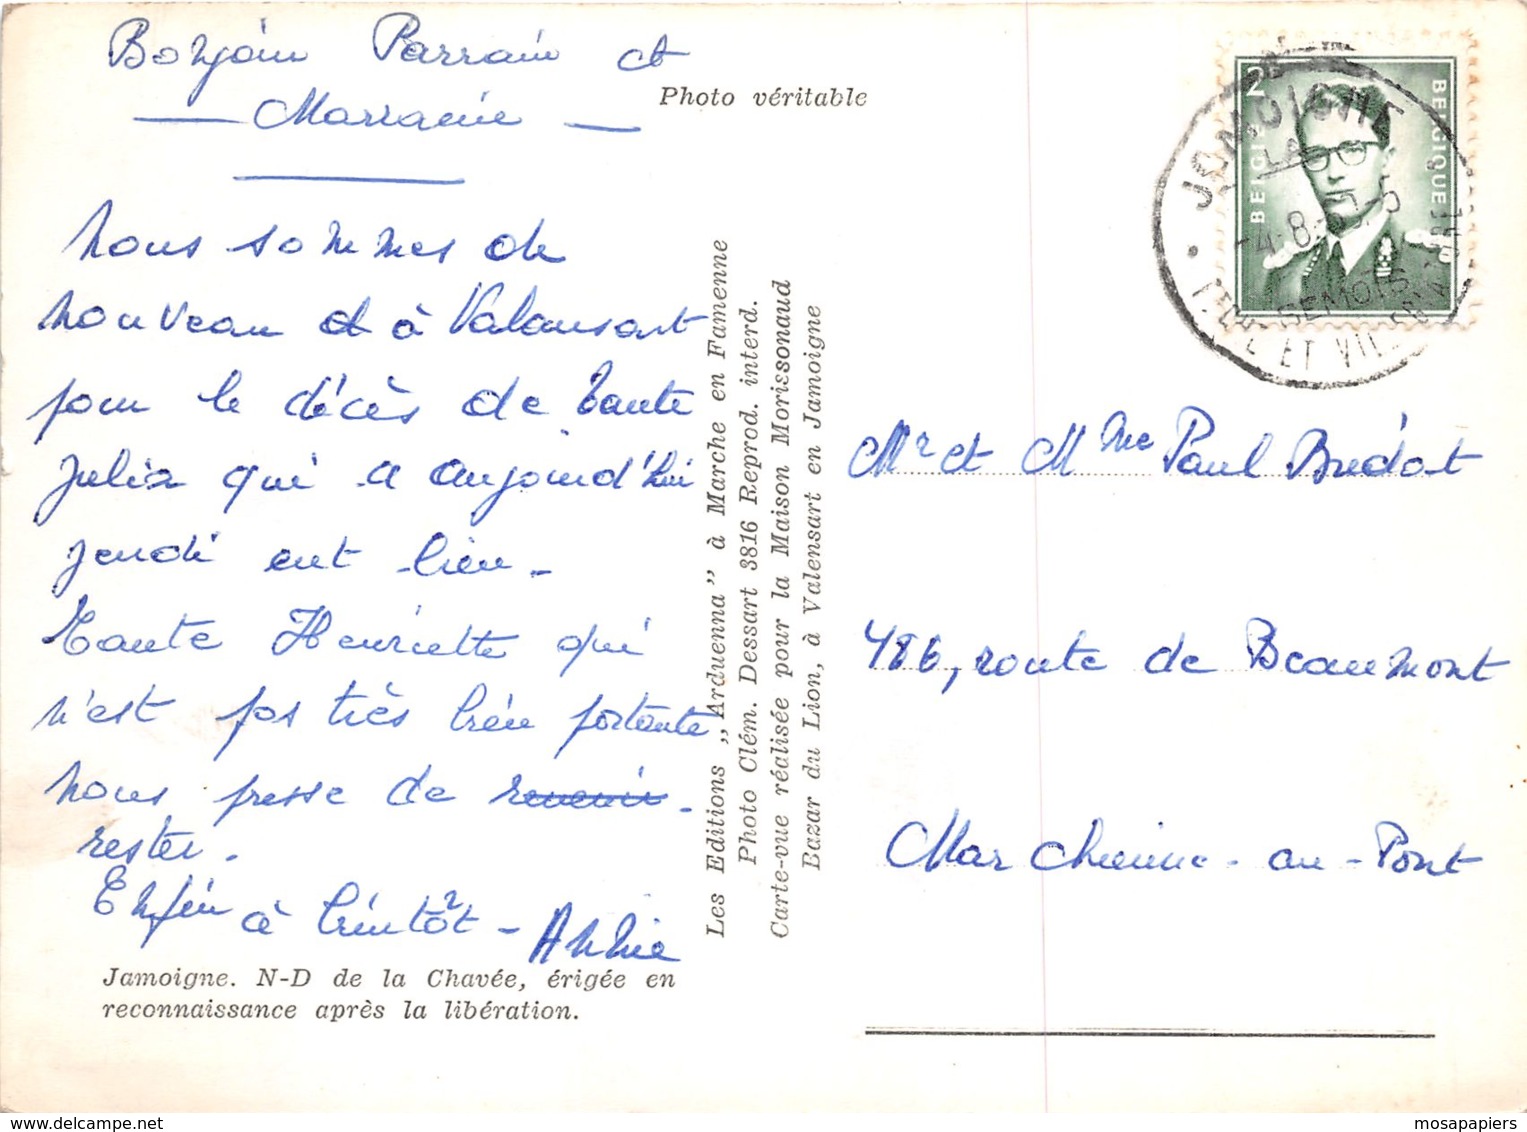 Bonjour Parrain et
Marraine
Nous sommes de
nouveau et à Valansart
pour le décès de tante
Julia qui a aujourd'hui
jeudi eut lieu -
Tante Henriette qui
n'est pas très bien portante
nous presse de revenir -
rester.
Enfin à bientôt - Annie
Jamoigne. N-D de la Chavée, érigée en
reconnaissance après la libération.
Photo véritable
Les Editions „Arduenna” à Marche en Famenne
Photo Clém. Dessart 3816 Reprod. interd.
Carte-vue réalisée pour la Maison Morissonaud
Bazar du Lion, à Valensart en Jamoigne
BELGIE 2
BELGIQUE
JAMOIGNE
Mr et Mme Paul Bredat
486, route de Beaumont
Marchienne-au-Pont
mosapapiers